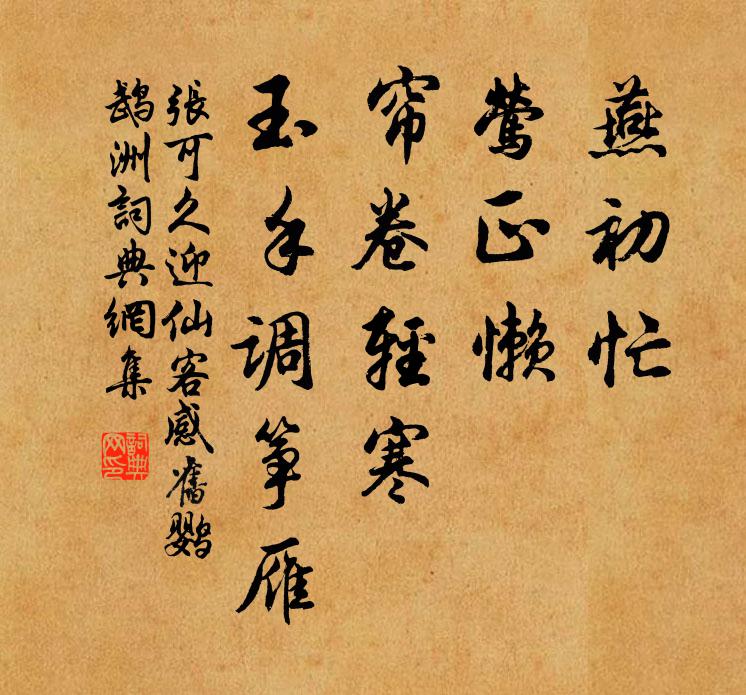 燕初忙
鶯正懶
帘卷輕寒
玉手調箏雁
張可久迎仙客感舊鸚
鵡洲詞典網集
詞典
网印